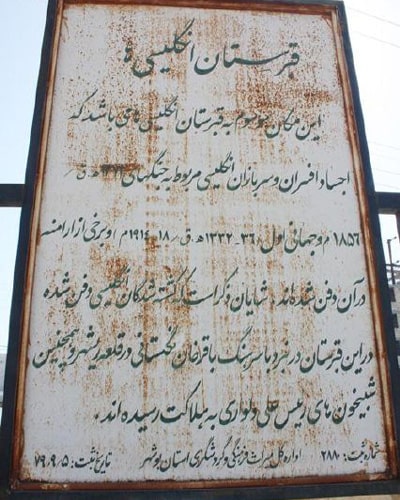 قبرستان انگلیسی ها
این مکان موسوم به قبرستان انگلیسی های باشد که
اجساد افسران و سربازان انگلیسی مربوط به جنگهای ه.ق
۱۸۵۶ م و جهانی اول ۳۶-۱۳۳۲ ه.ق ۱۸-۱۹۱۴ م و برخی از ارامنه
در آن دفن شده اند. شایان ذکر است که کشته شدگان انگلیسی دفن شده
در این قبرستان در نبرد با سرهنگ باقرخان تنگستانی در قلعه ریشهر و همچنین
شبیخون های رئیس علی دلواری به هلاکت رسیده اند.
شماره ثبت: ۲۸۸۰ اداره کل میراث فرهنگی و گردشگری استان بوشهر تاریخ ثبت: ۷۹،۹،۵